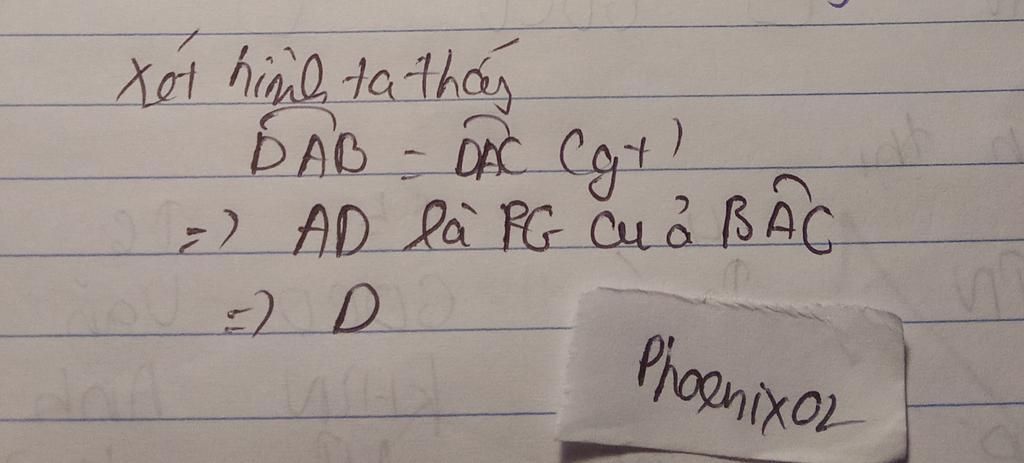 Xét hình ta thấy
DAB = DAC (gt)
=> AD là PG của BAC
=> D
Phoenix02